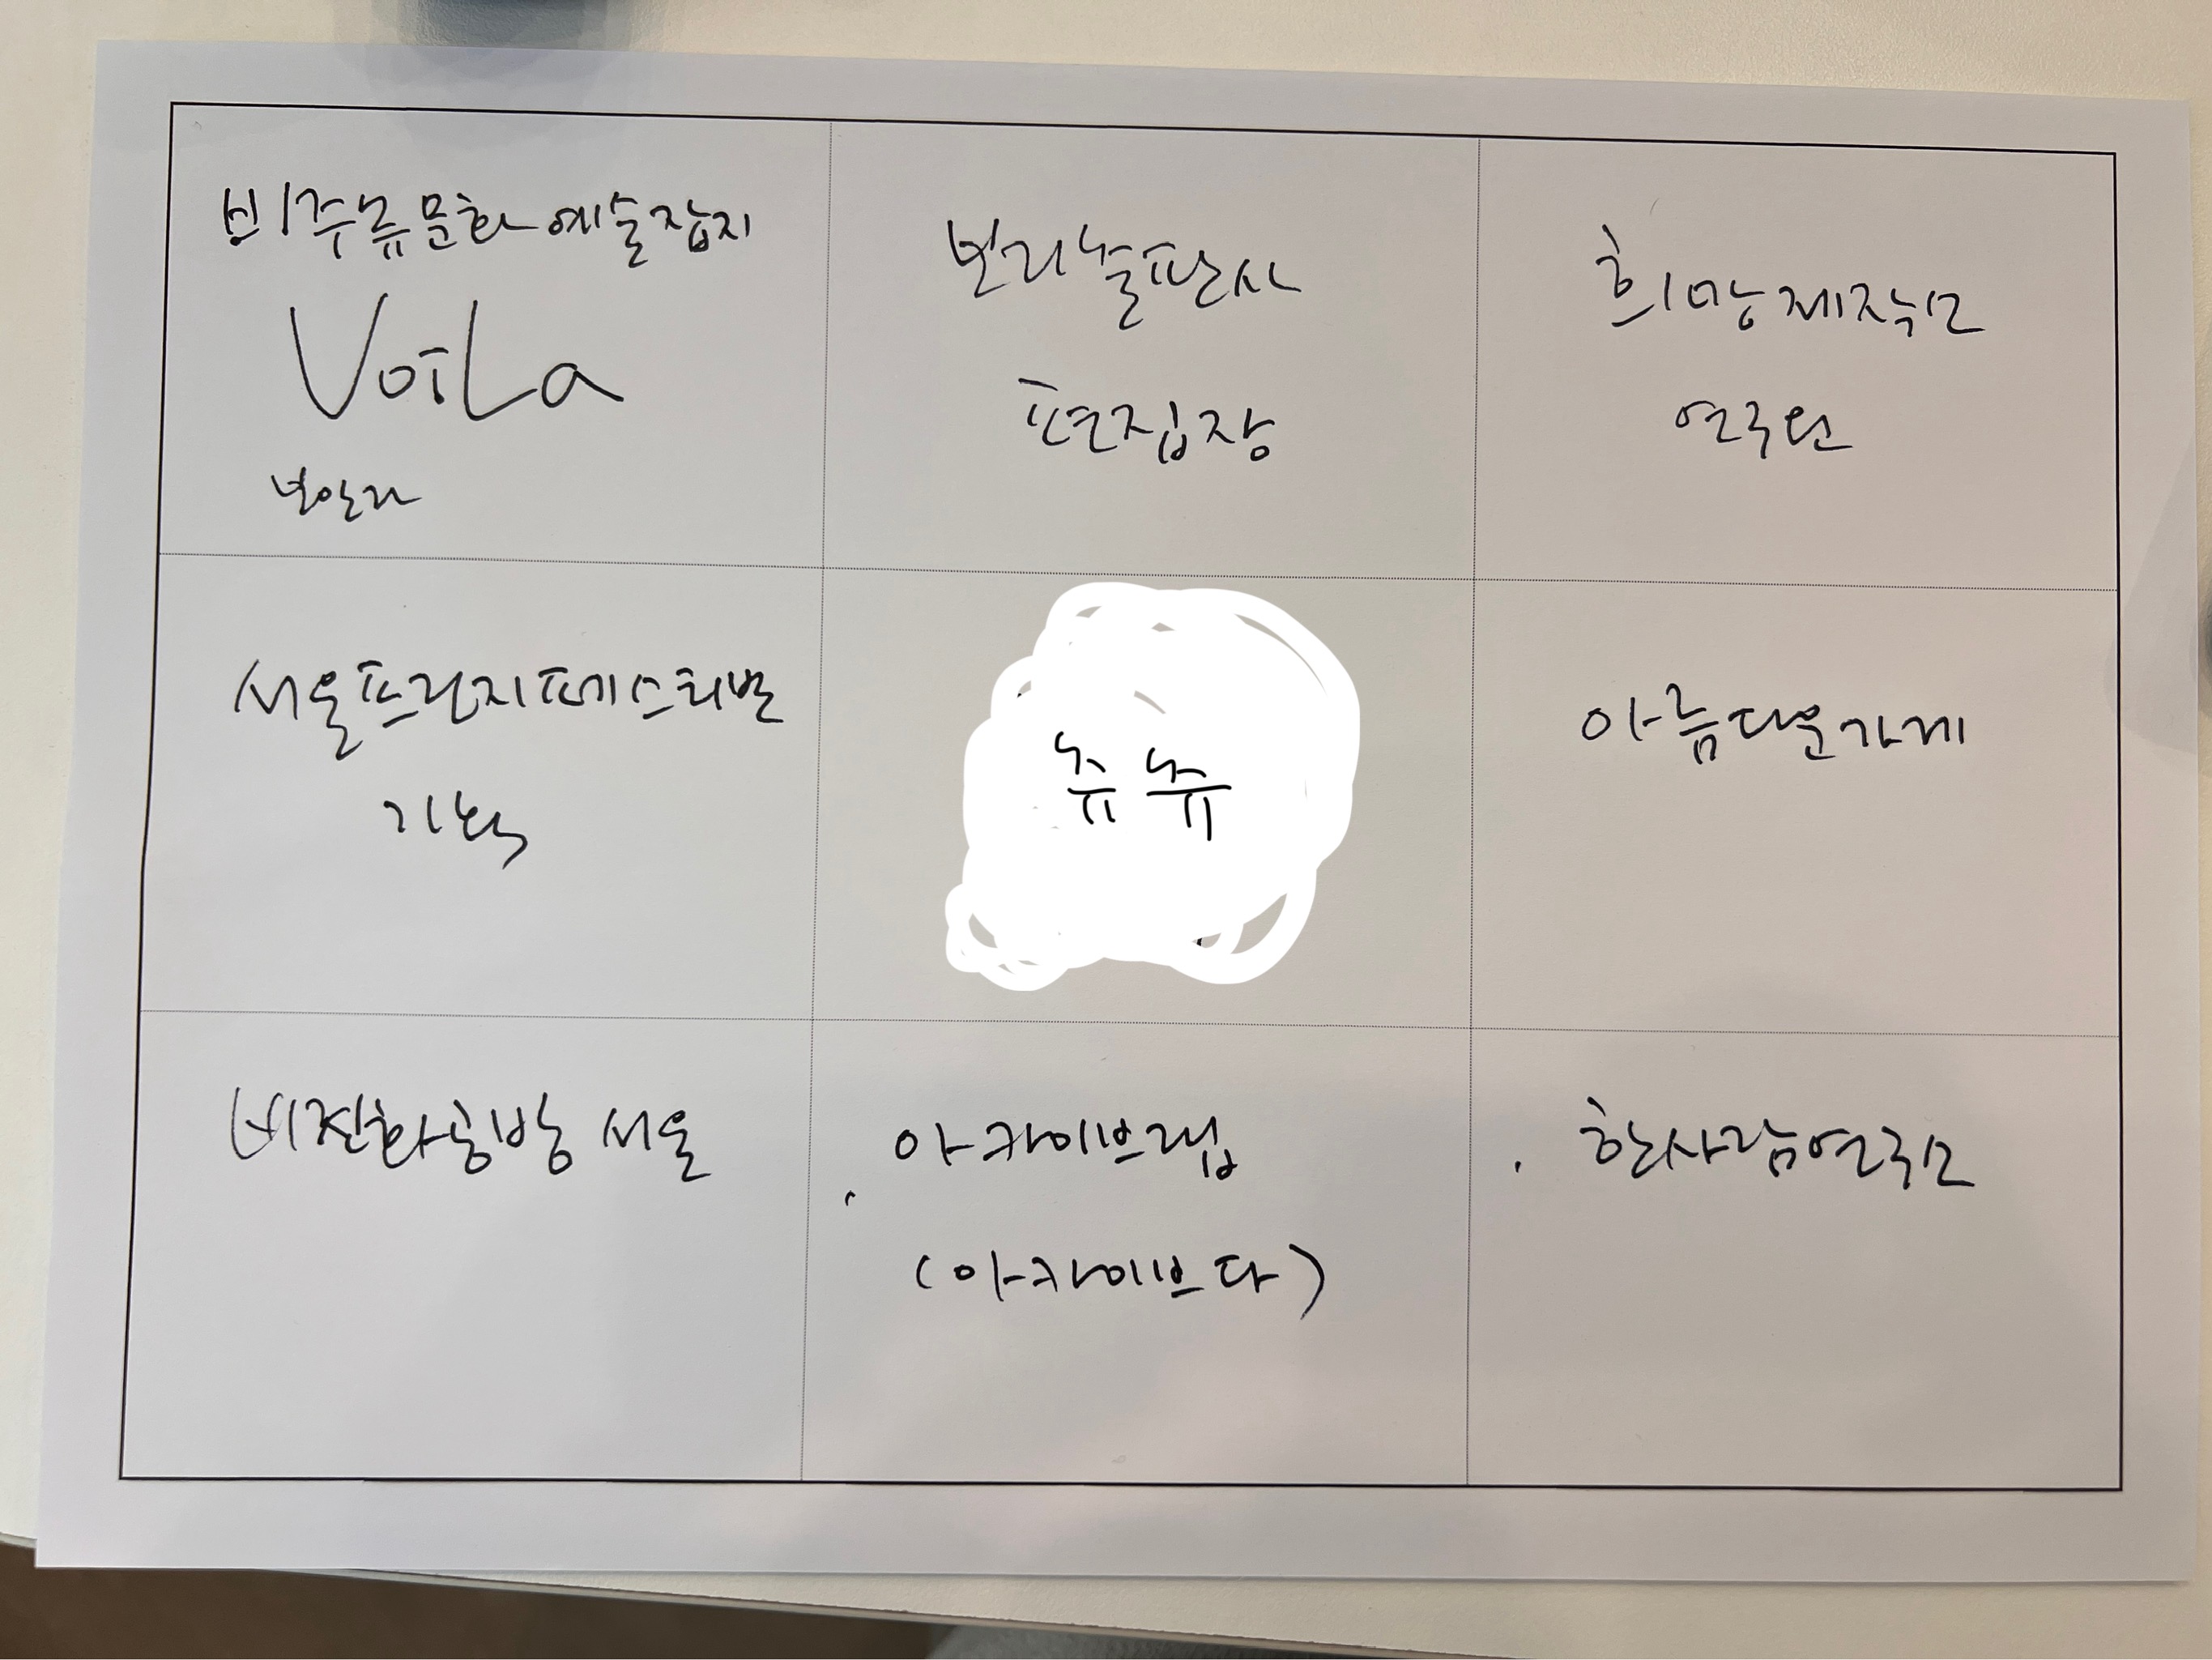 비주류문화예술잡지
VoiLa
보알라
보리출판사
편집장
희망제작소
연구원
서울프린지페스티벌
기획
슈슈
아름다운가게
비전화공방 서울
아카이브랩
(아카이브다)
한사람연구소